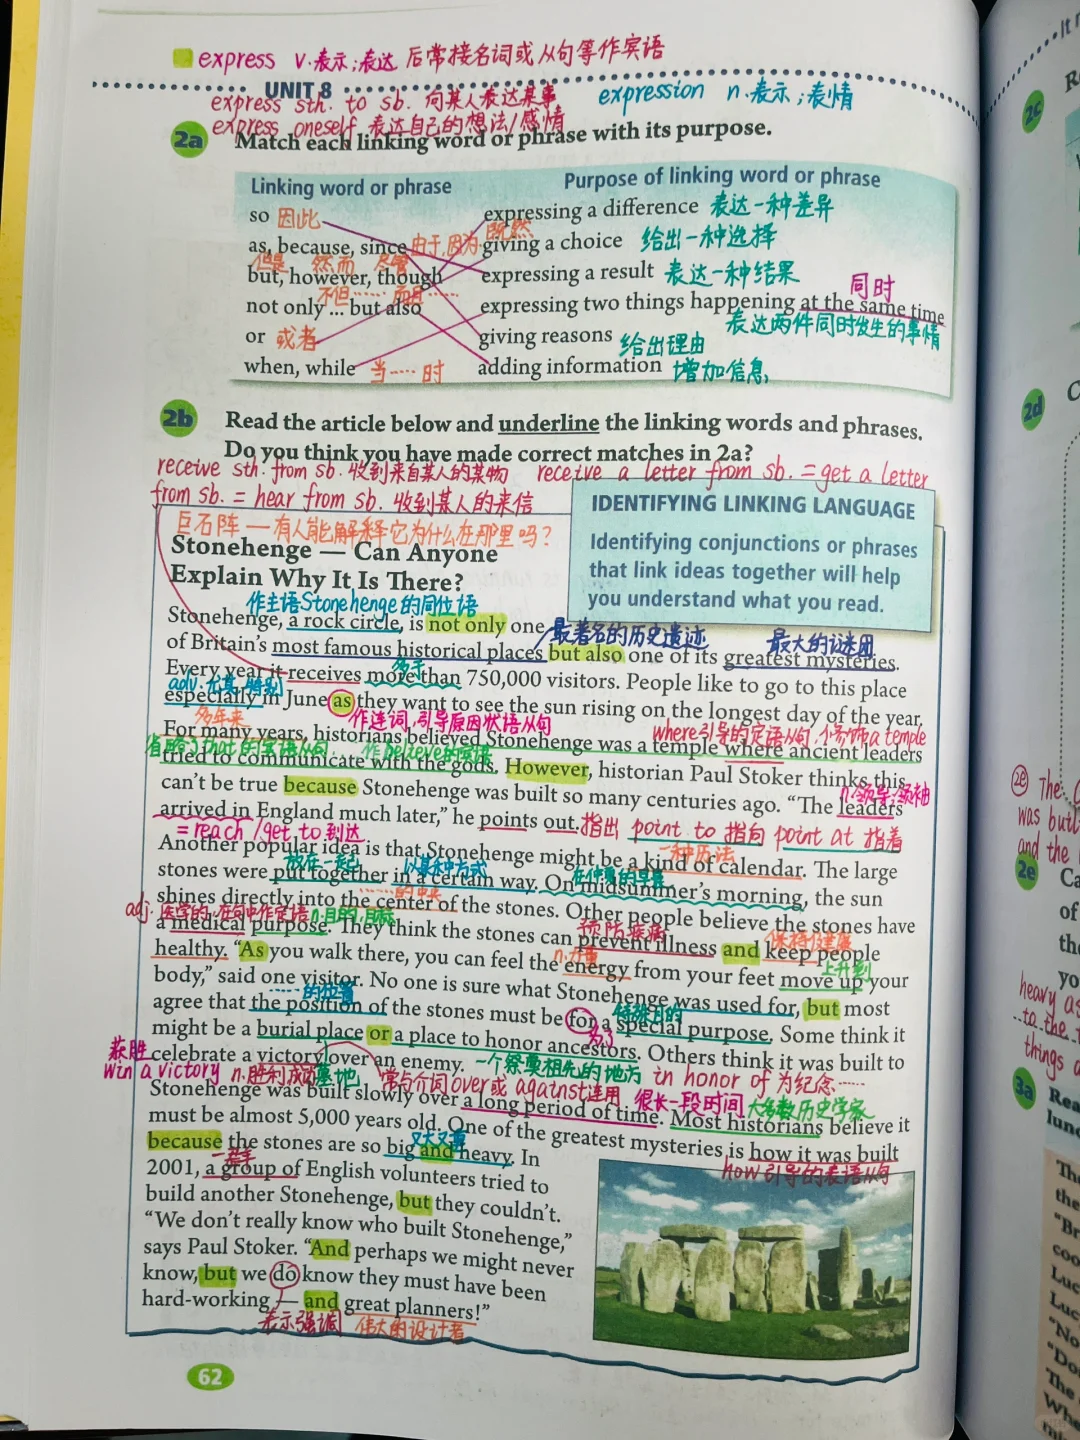 express v.表示;表达 后常接名词或从句等作宾语
UNIT 8
express sth. to sb. 向某人表达某事
expression n.表示;表情
express oneself 表达自己的想法/感情
2a Match each linking word or phrase with its purpose.
Linking word or phrase
Purpose of linking word or phrase
so 因此
expressing a difference 表达一种差异
as, because, since 由于,因为 既然
giving a choice 给出一种选择
但是 然而 尽管
but, however, though
expressing a result 表达一种结果
同时
不但…… 而且……
not only ... but also
expressing two things happening at the same time
表达两件同时发生的事情
or 或者
giving reasons 给出理由
when, while 当……时
adding information 增加信息
2b Read the article below and underline the linking words and phrases.
Do you think you have made correct matches in 2a?
receive sth. from sb. 收到来自某人的某物 receive a letter from sb. = get a letter
from sb. = hear from sb. 收到某人的来信
IDENTIFYING LINKING LANGUAGE
Identifying conjunctions or phrases
that link ideas together will help
you understand what you read.
巨石阵 — 有人能解释它为什么在那里吗?
Stonehenge — Can Anyone
Explain Why It Is There?
作主语Stonehenge的同位语
Stonehenge, a rock circle, is not only one
最著名的历史遗迹 最大的谜团
of Britain's most famous historical places but also one of its greatest mysteries.
多于
Every year it receives more than 750,000 visitors. People like to go to this place
adv.尤其,特别
especially in June as they want to see the sun rising on the longest day of the year.
多年来 作连词,引导原因状语从句 where引导的定语从句,修饰a temple
For many years, historians believed Stonehenge was a temple where ancient leaders
省略了that的宾语从句,作believe的宾语
tried to communicate with the gods. However, historian Paul Stoker thinks this
can't be true because Stonehenge was built so many centuries ago. "The leaders
n.领导;领袖
arrived in England much later," he points out. 指出 point to 指向 point at 指着
= reach/get to 到达
一种历法
Another popular idea is that Stonehenge might be a kind of calendar. The large
放在一起 以某种方式 在仲夏的早晨
stones were put together in a certain way. On midsummer's morning, the sun
……的中央
shines directly into the center of the stones. Other people believe the stones have
adj.医学的,在句中作定语 n.目的,目标
a medical purpose. They think the stones can prevent illness and keep people
预防疾病 保持健康
healthy. "As you walk there, you can feel the energy from your feet move up your
n.力量 上升到
body," said one visitor. No one is sure what Stonehenge was used for, but most
……的位置 特殊目的
agree that the position of the stones must be for a special purpose. Some think it
为了
might be a burial place or a place to honor ancestors. Others think it was built to
获胜
celebrate a victory over an enemy. 一个祭奠祖先的地方 in honor of 为纪念……
win a victory n.胜利,成功 墓地 常与介词over或against连用 很长一段时间 大多数历史学家
Stonehenge was built slowly over a long period of time. Most historians believe it
must be almost 5,000 years old. One of the greatest mysteries is how it was built
又大又重
because the stones are so big and heavy. In
how引导的表语从句
一群
2001, a group of English volunteers tried to
build another Stonehenge, but they couldn't.
"We don't really know who built Stonehenge,"
says Paul Stoker. "And perhaps we might never
know, but we do know they must have been
hard-working — and great planners!"
表示强调 伟大的设计者
62
2c
2d
2e The
was buil
and the
2e Ca
of
the
yo
heavy as
to the
things
3a Rea
lunc